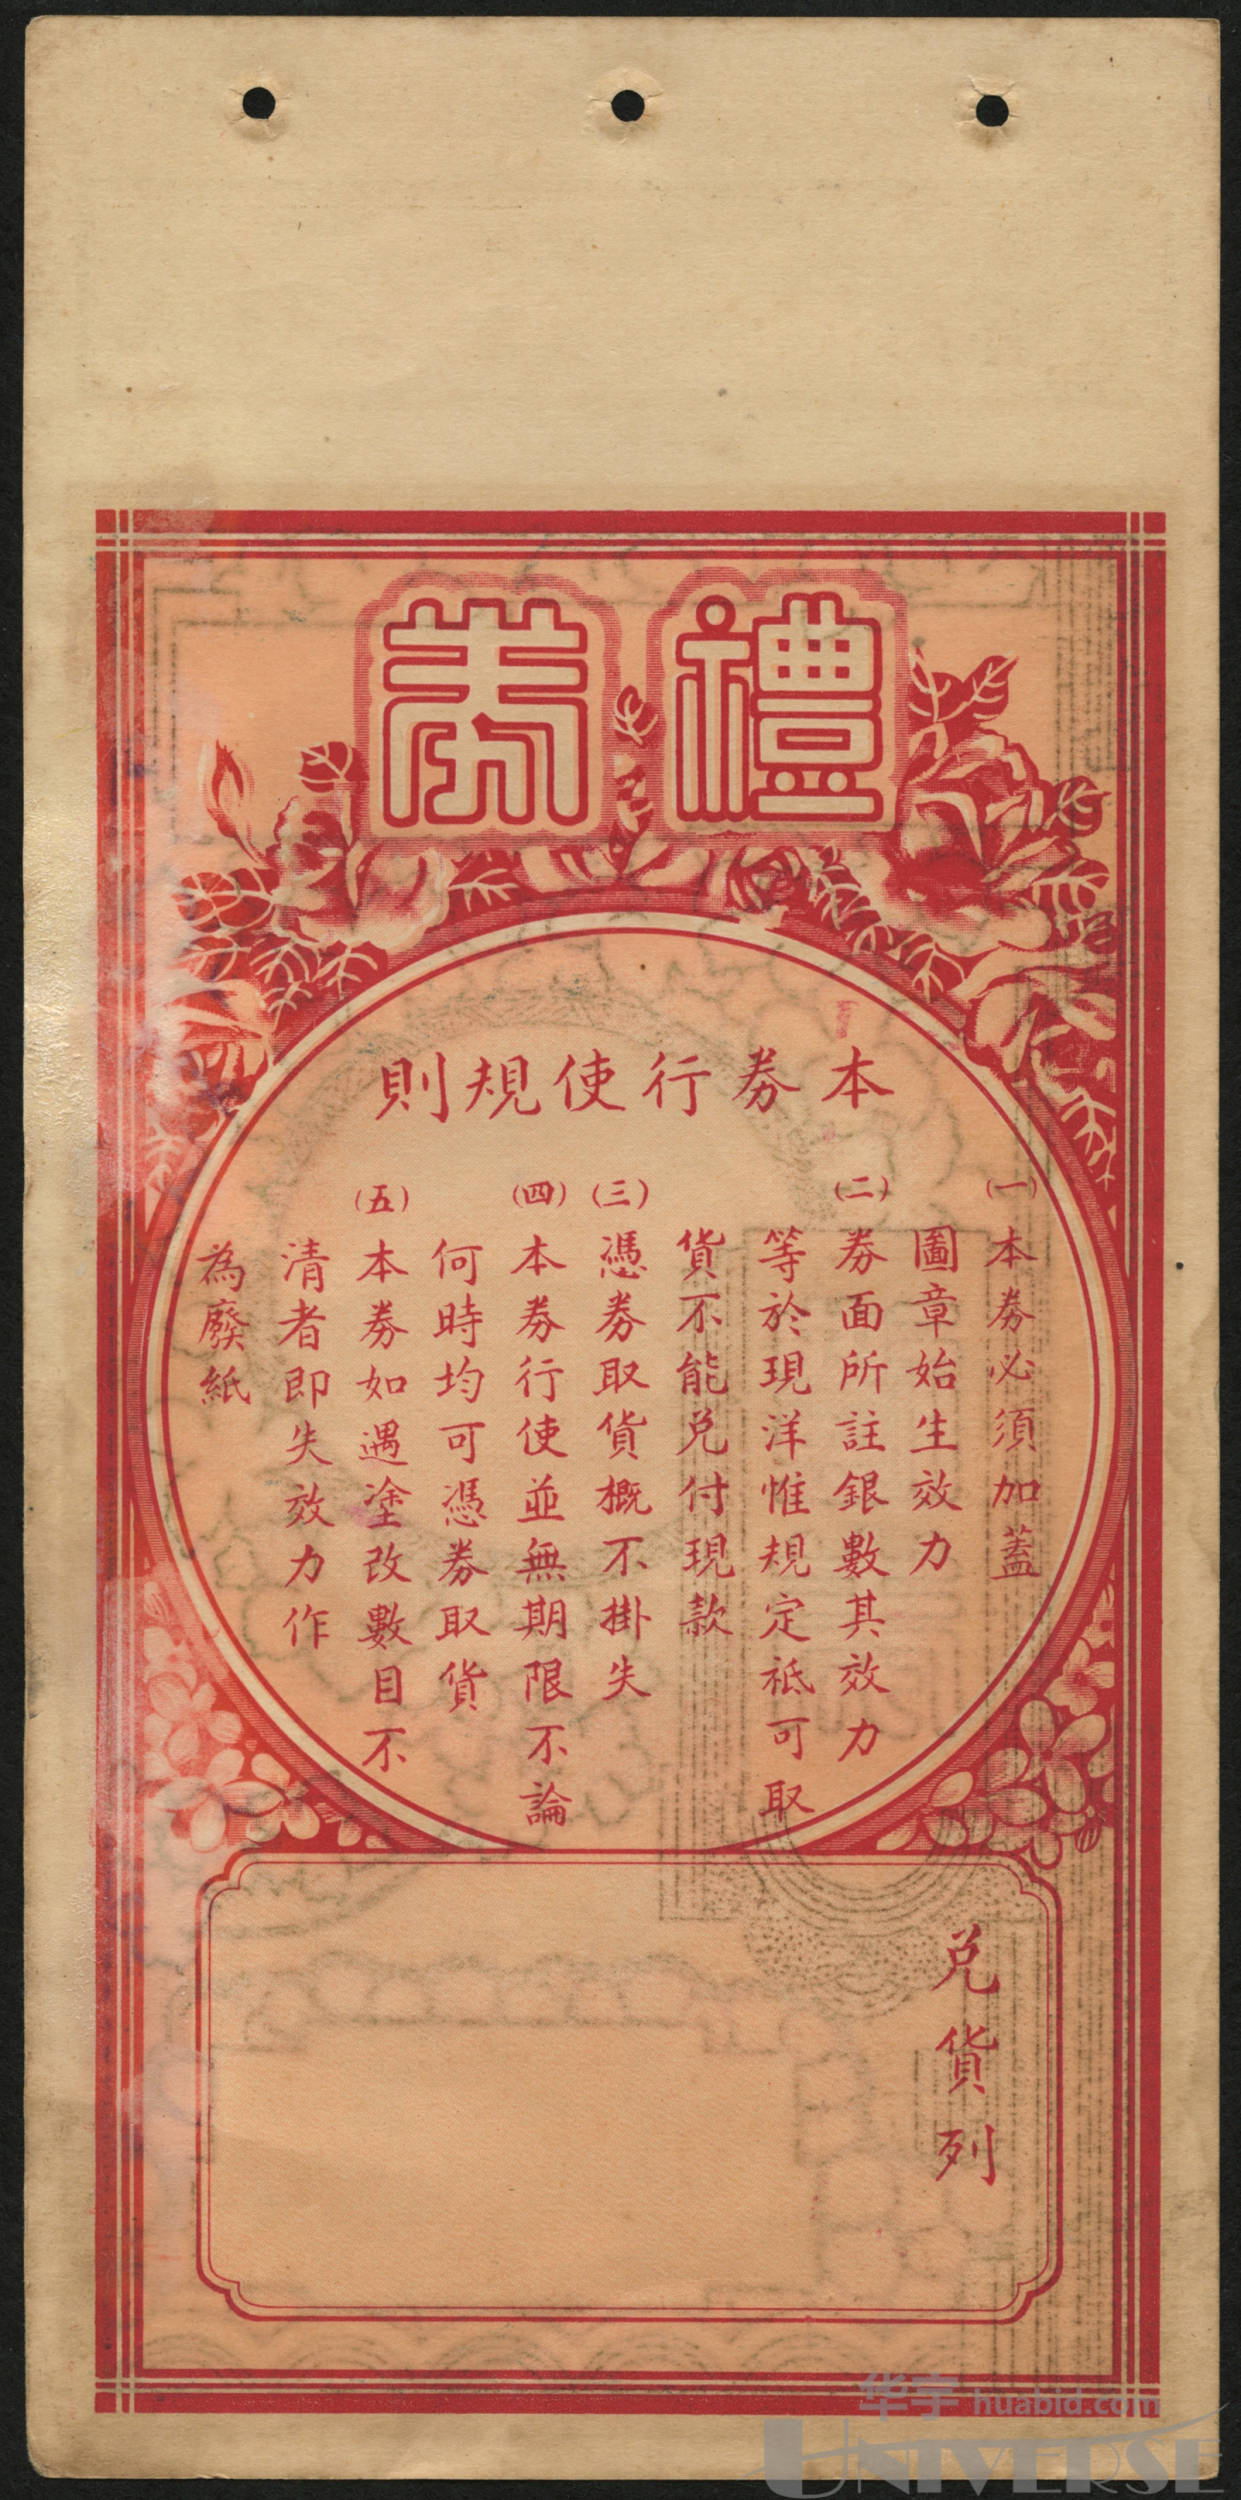 禮券
本券行使規則
(一)本券必須加蓋
圖章始生效力
(二)券面所註銀數其效力
等於現洋惟規定祗可取
貨不能兌付現款
(三)憑券取貨概不掛失
(四)本券行使並無期限不論
何時均可憑券取貨
(五)本券如遇塗改數目不
清者即失效力作
為廢紙
兌貨列
华宇 huabid.com
UNIVERSE